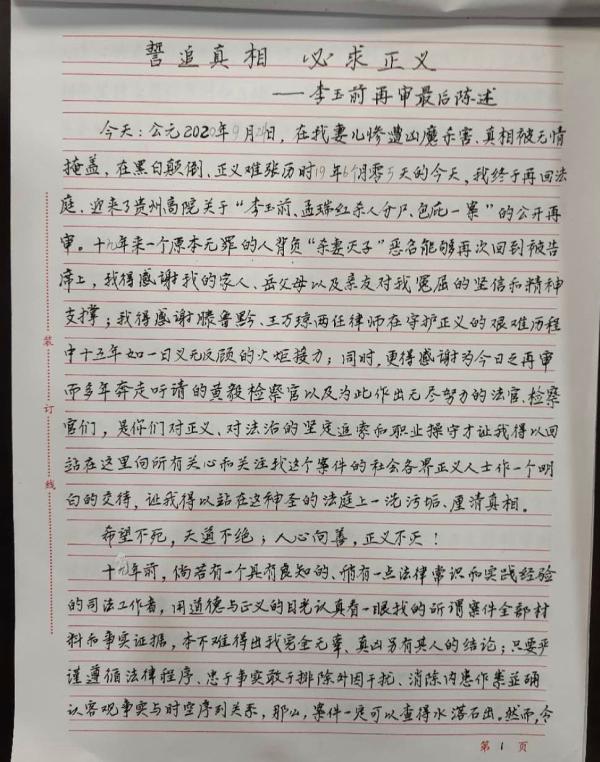 誓追真相 必求正义
——李玉前再审最后陈述
今天:公元2020年9月24日,在我妻儿惨遭凶魔杀害、真相被无情
掩盖,在黑白颠倒、正义难张历时19年6个月零5天的今天,我终于再回法
庭、迎来了贵州高院关于“李玉前、孟瑞红杀人分尸、包庇一案”的公开再
审。十九年来一个原本无罪的人背负“杀妻灭子”恶名能够再次回到被告
席上,我得感谢我的家人、岳父母以及亲友对我冤屈的坚信和精神
支撑;我得感谢滕鲁黔、王万琼两任律师在守护正义的艰难历程
中十五年如一日义无反顾的火炬接力;同时,更得感谢为今日之再审
而多年奔走吁请的黄毅检察官以及为此作出无尽努力的法官、检察
官们,是你们对正义、对法治的坚定追索和职业操守才让我得以回
站在这里向所有关心和关注我这个案件的社会各界正义人士作一个明
白的交待,让我得以站在这神圣的法庭上一洗污垢、厘清真相。
希望不死,天道不绝;人心向善,正义不灭!
十九年前,倘若有一个具有良知的、稍有一点法律常识和实践经验
的司法工作者,用道德与正义的目光认真看一眼我的所谓案件全部材
料和事实证据,本不难得出我完全无辜、真凶另有其人的结论;只要严
谨遵循法律程序、忠于事实敢于排除外因干扰、消除内患作祟並确
认客观事实与时空序列关系,那么,案件一定可以查得水落石出。然而,今
装
订
线
第 1 页